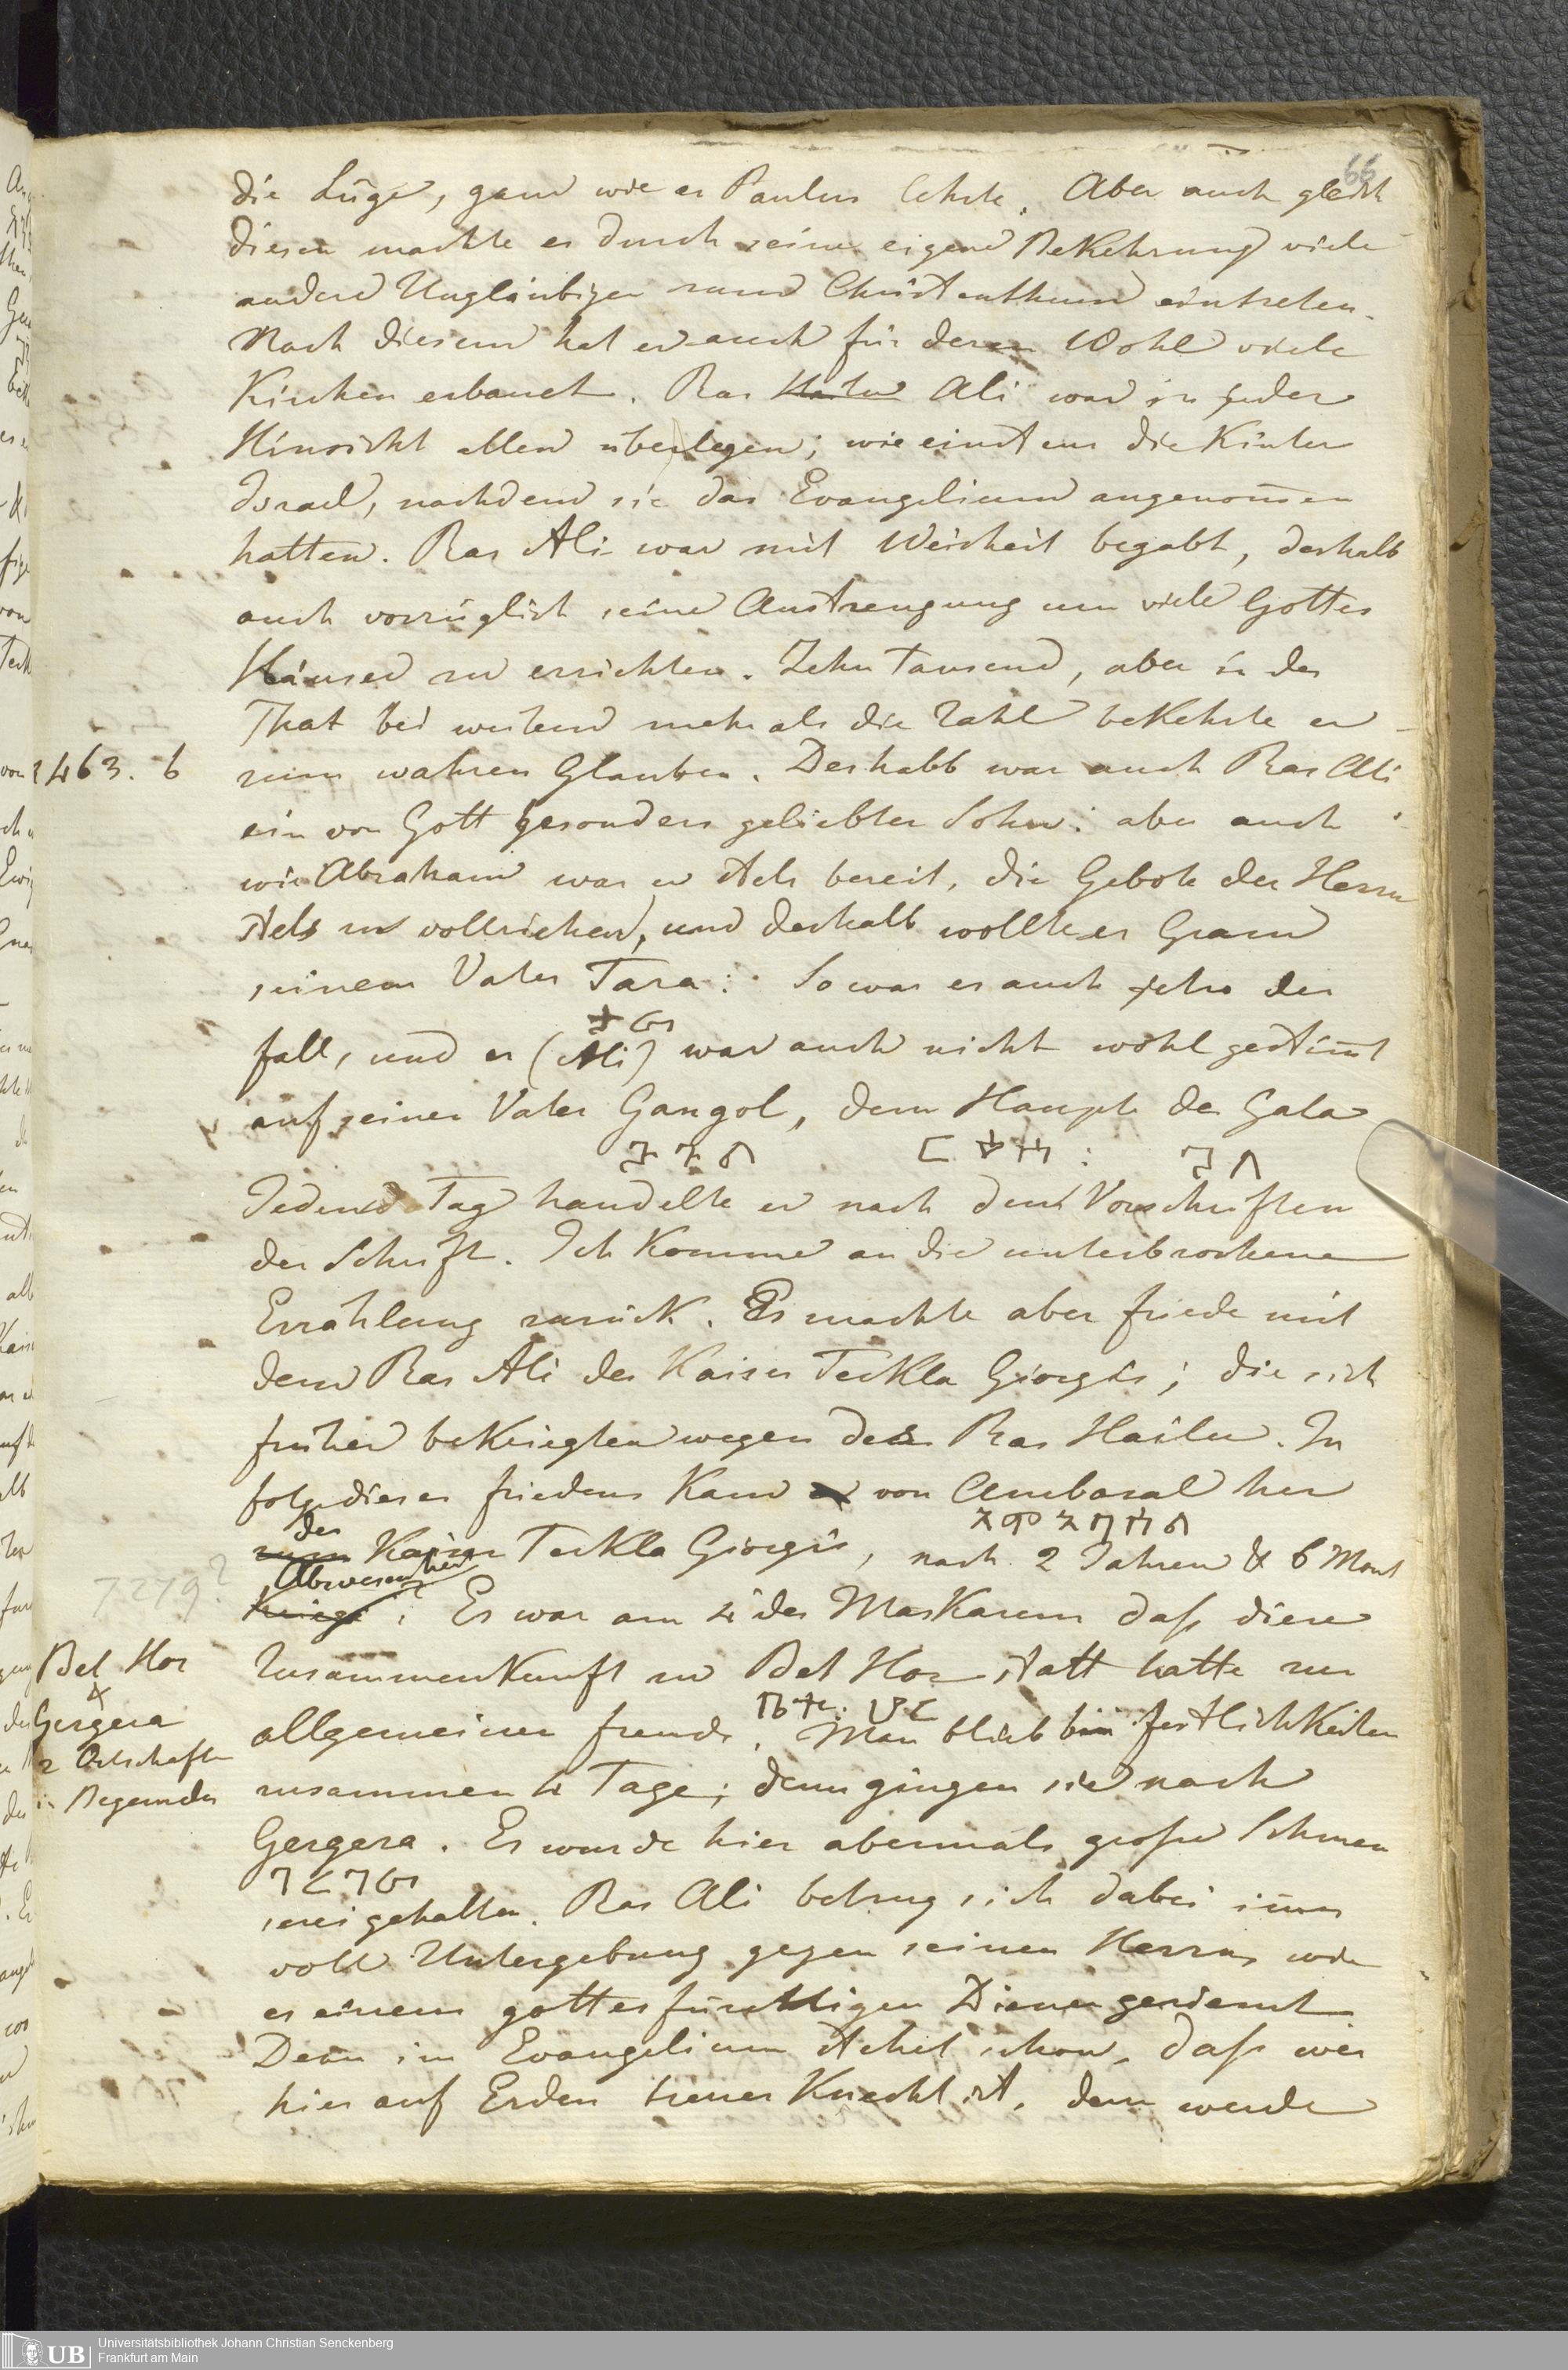 66
die Lüge, ganz wie es Paulus lehrte. Aber auch gleich
diesen machte er durch seine eigene Bekehrung viele
andere Ungläubigen zum Christenthum eintreten.
Nach diesem hat er auch für deren Wohl viele
Kirchen erbauet. Ras Hailu Ali war in jeder
Hinsicht allen überlegen; wie einstens die Kinder
Israel, nachdem sie das Evangelium angenom̄en
hatten. Ras Ali war mit Weisheit begabt, deshalb
auch vorzüglich seine Anstrengung um viele Gottes
Häuser zu errichten. Zehn Tausend, aber in der
That bei weitem mehr als die Zahl bekehrte er
463. b
zum wahren Glauben. Deshalb war auch Ras Ali
ein von Gott besonders geliebter Sohn: aber auch
wie Abraham war er stets bereit, die Gebote des Herrn
stets zu vollziehen, und deshalb wollte er Gram
seinem Vater Tara: So war es auch jetzo der
ታራ
fall, und er (Ali) war auch nicht wohl gestim̄t
auf seinen Vater Gangol, dem Haupte der Gala
ጓንጉል ርእሰ: ጋላ
Jeden Tag handelte er nach den Vorschriften
der Schrift. Ich komme an die unterbrochene
Erzählung zurück. Es machte aber friede mit
dem Ras Ali der Kaiser Teckla Giorgis; die sich
früher bekriegten wegen des Ras Hailu. In
folge dieses friedens kam er von Ambasal her
አምባሰል
der
zum Kaiser Teckla Giorgis, nach 2 Jahren & 6 Mont
Abwesenheit
Kriege? Es war am 4 des Maskarem daß diese
7279?
Bet Hor
&
Gergera
2 Ortschaften
in Begemder
Zusammenkunft zu Bet Hor statt hatte zur
ቤተ: ሆር
allgemeinen freude. Man blieb bei festlichkeiten
zusammen 4 Tage; dann gingen sie nach
Gergera. Es wurde hier abermals große Schmau
ገርገራ
serei gehalten. Ras Ali betrug sich dabei im̄er
voll Untergebung gegen seinen Herrn, wie
es einem gottesfürchtigen Diener geziemt
Denn im Evangelium stehet schon, daß wer
hier auf Erden treuer Knecht ist, dem werde
Universitätsbibliothek Johann Christian Senckenberg
Frankfurt am Main
UB